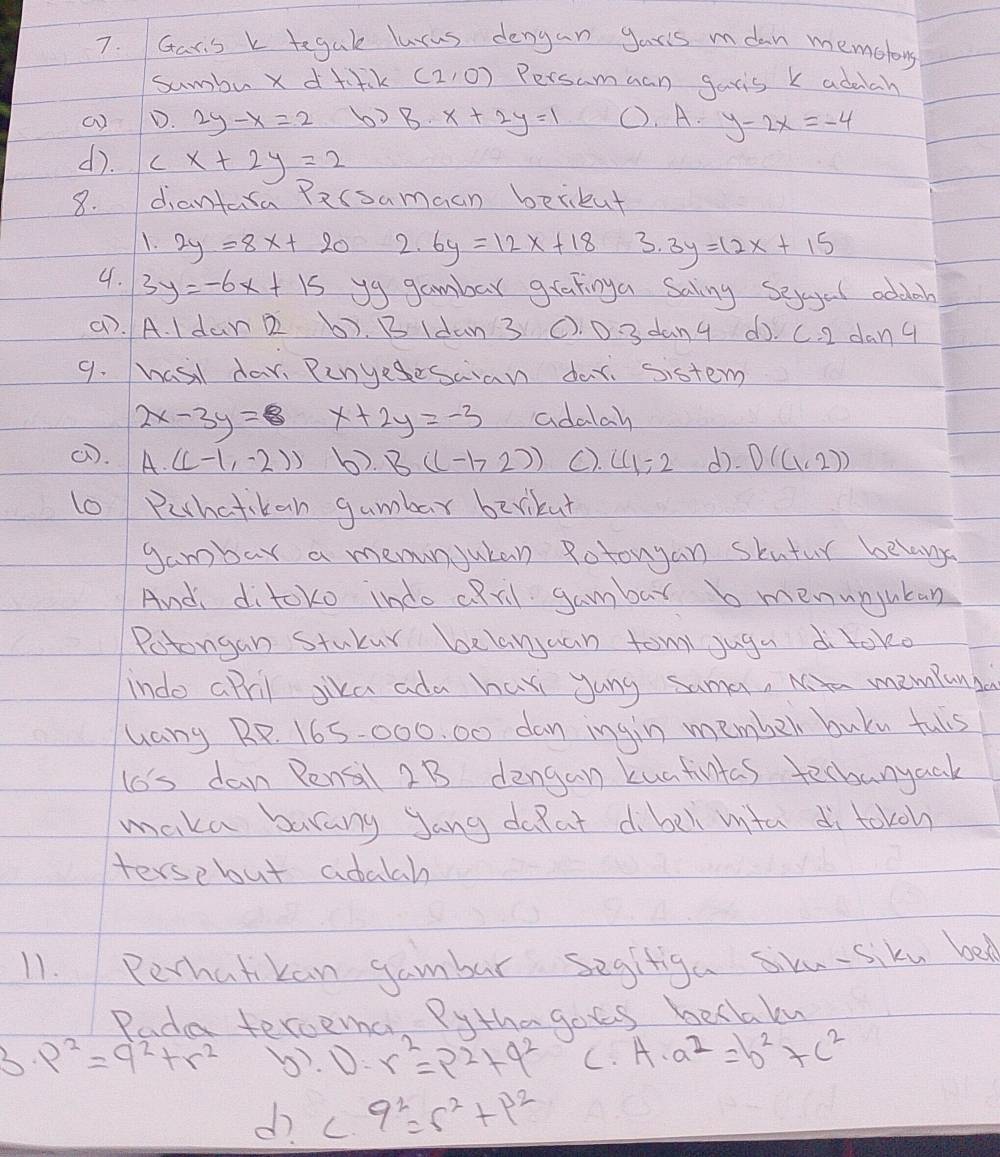 7. Garis k tegak lurus dengan garis m dan memotong
Sumbu x d titik (2,0) Persamaan garis k adalah
a) D. 2y-x=2 b) B. x+2y=1 C). A. y-2x=-4
d). C x+2y=2
8. diantara Persamaan berikut
1. 2y=8x+20 2. 6y=12x+18 3. 3y=12x+15
4. 3y=-6x+15 yg gambar grafinya Saling Sejajar adalah
a). A. 1 dan 2 b). B 1 dan 3 C). D. 3 dan 4 d). C. 2 dan 4
9. hasil dari Penyelesaian dari sistem
2x-3y=8 x+2y=-3 adalah
a). A. ((-1,-2)) b). B ((-1,2)) C). ((1,-2 d). D((1,2))
10 Perhatikan gambar berikut
gambar a menunjukan Potongan Skutur belanja
Andi ditoko indo april gambar b menunjukan
Potongan Stukur belanjaan tomi juga di toko
indo april jika ada hari yang sama, Nita
uang RP. 165.000.00 dan ingin membeli buku tulis
10's dan Pensil 2B dengan kuatintas terbanyaak
maka barang yang dapat dibeli nita di tokoh
tersebut adalah
11. Perhatikan gambar segitiga siku-siku
Pada teroema Pythagoras berlaku
B. P²=q²+r² b). D. r²=p²+q² C. A. a²=b²+c²
d) C. q²=r²+p²